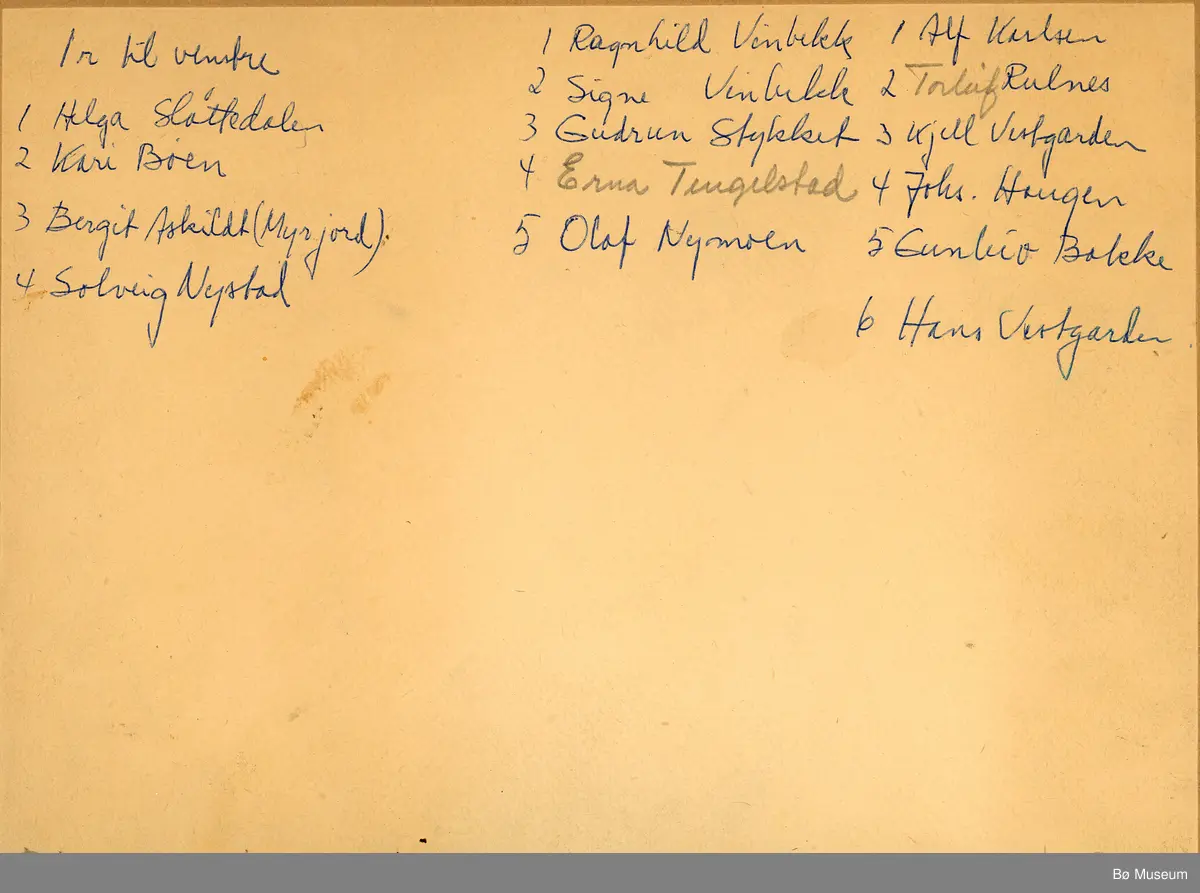 1 r til venstre
1 Helga Slåttedalen
2 Kari Bøen
3 Bergit Askildt (Myrjord).
4 Solveig Nystad
1 Ragnhild Vinbekk
2 Signe Vinbekk
3 Gudrun Stykket
4 Erna Tengelstad
5 Olaf Nymoen
1 Alf Karlsen
2 Torleif Rulnes
3 Kjell Vestgarden
4 Johs. Haugen
5 Gunleiv Bakke
6 Hans Vestgarden
Bø Museum